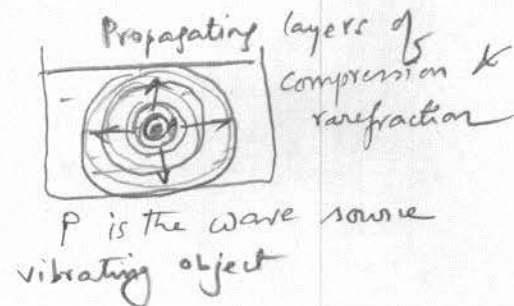 Propagating layers of
compression &
rarefraction
P is the wave source
vibrating object